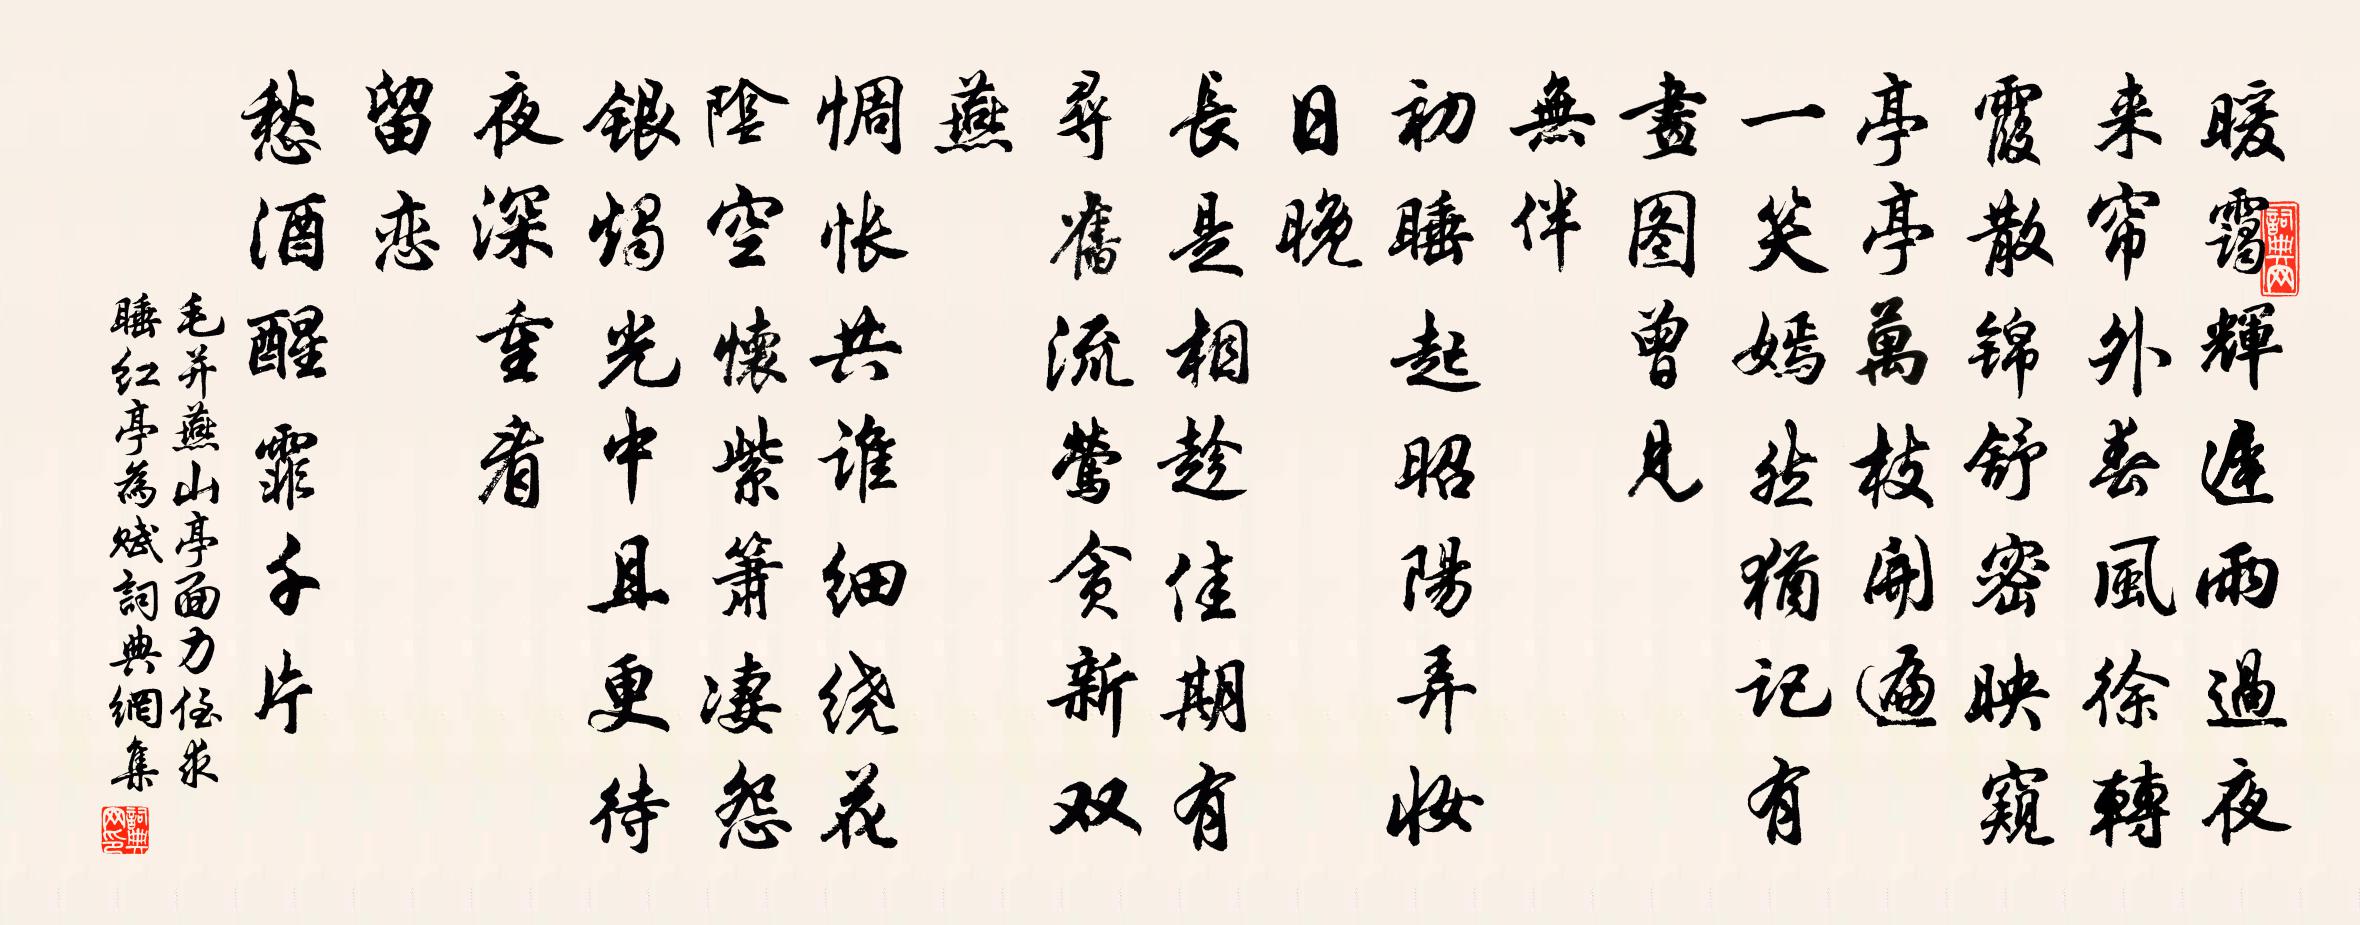 暖靄輝遲雨過夜
来帘外春風徐轉
霞散锦舒密映窺
亭亭萬枝開遍
一笑嫣然猶记有
畫图曾見
無伴
初睡起昭陽弄妆
日晚
長是相趁佳期有
尋舊流莺贪新双
燕
惆怅共谁细绕花
陰空懷紫箫凄怨
银烛光中且更待
夜深重看
留恋
愁酒醒霏千片
毛并燕山亭面力侄求
睡红亭為赋詞典網集
詞典网
詞典网印